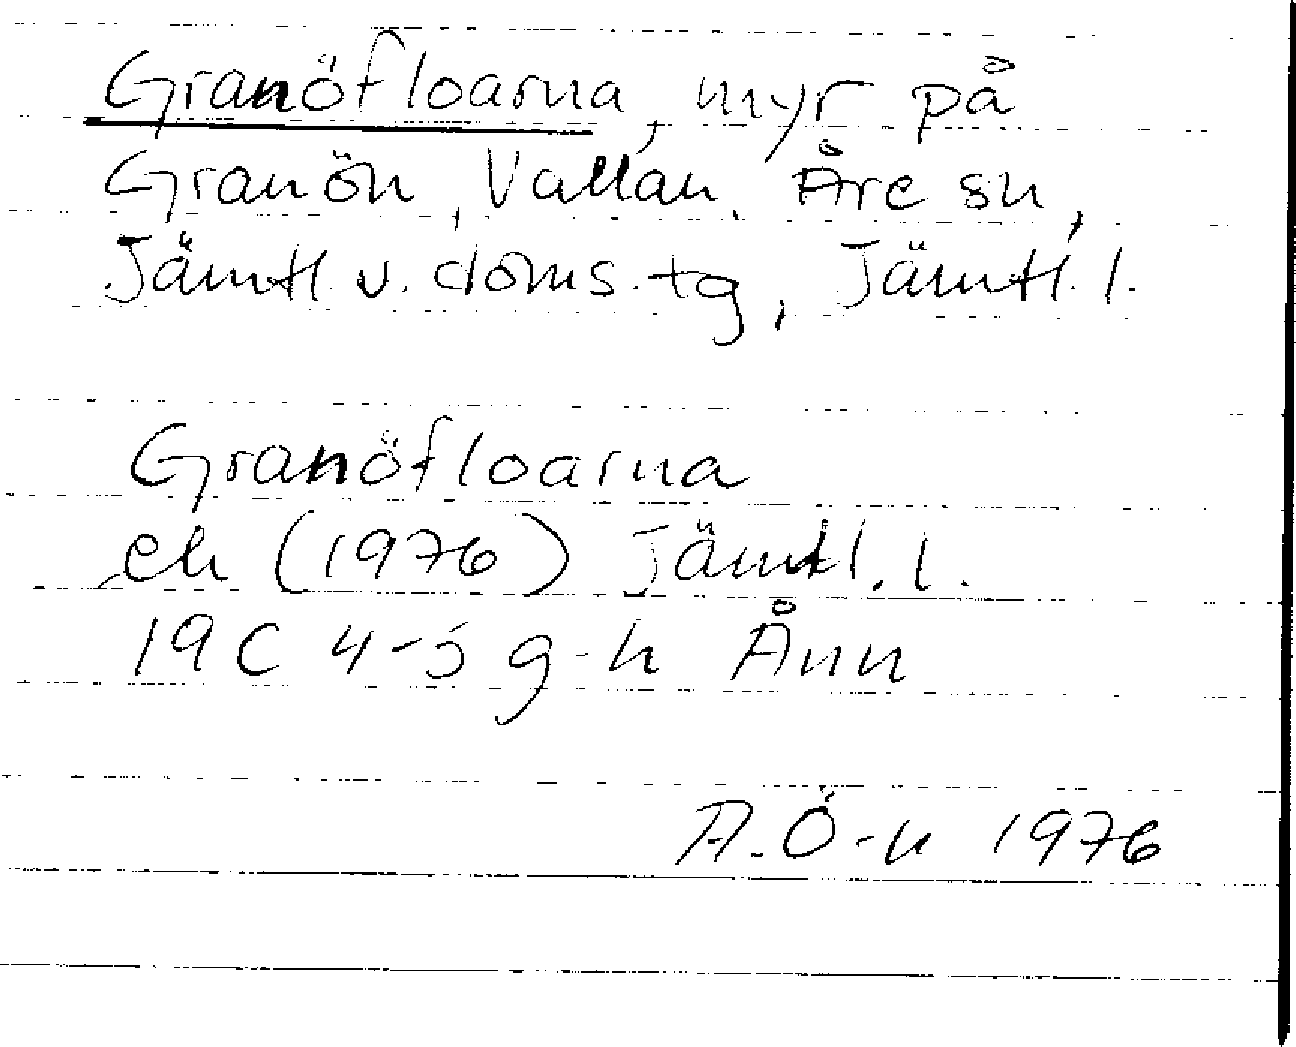 Granöfloarna, myr på
Granön, Vallan, Åre sn,
Jämtl. v. doms. tg, Jämtl. l.
Granöfloarna
ek (1976) Jämtl. l.
19C 4-5 g-h Ånn
A.Ö-n 1976